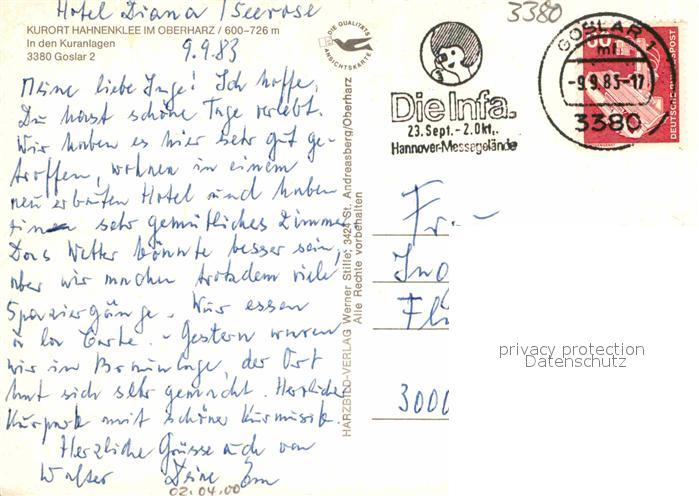 Hotel Diana / Seerose
KURORT HAHNENKLEE IM OBERHARZ / 600–726 m
In den Kuranlagen
3380 Goslar 2
9.9.83
Meine liebe Inge! Ich hoffe,
Du hast schöne Tage verlebt.
Wir haben es hier sehr gut ge-
troffen, wohnen in einem
neu erbauten Hotel und haben
ein sehr gemütliches Zimmer
Das Wetter könnte besser sein,
aber wir machen trotzdem viele
Spaziergänge. Wir essen
a la Carte. - Gestern waren
wir in Braunlage, der Ort
hat sich sehr gemacht. Herrlicher
Kurpark mit schöner Kurmusik.
Herzliche Grüsse auch von
Walter Deine
02.04.00
DIE QUALITÄTS
ANSICHTSKARTE
HARZBILD-VERLAG Werner Stille, 3424 St. Andreasberg/Oberharz
Alle Rechte vorbehalten
3380
Die Infa.
23. Sept. - 2. Okt.
Hannover-Messegelände
GOSLAR 1
mf
-9.9.83-17
3380
DEUTSCHE BUNDESPOST
Fr.
3000
privacy protection
Datenschutz